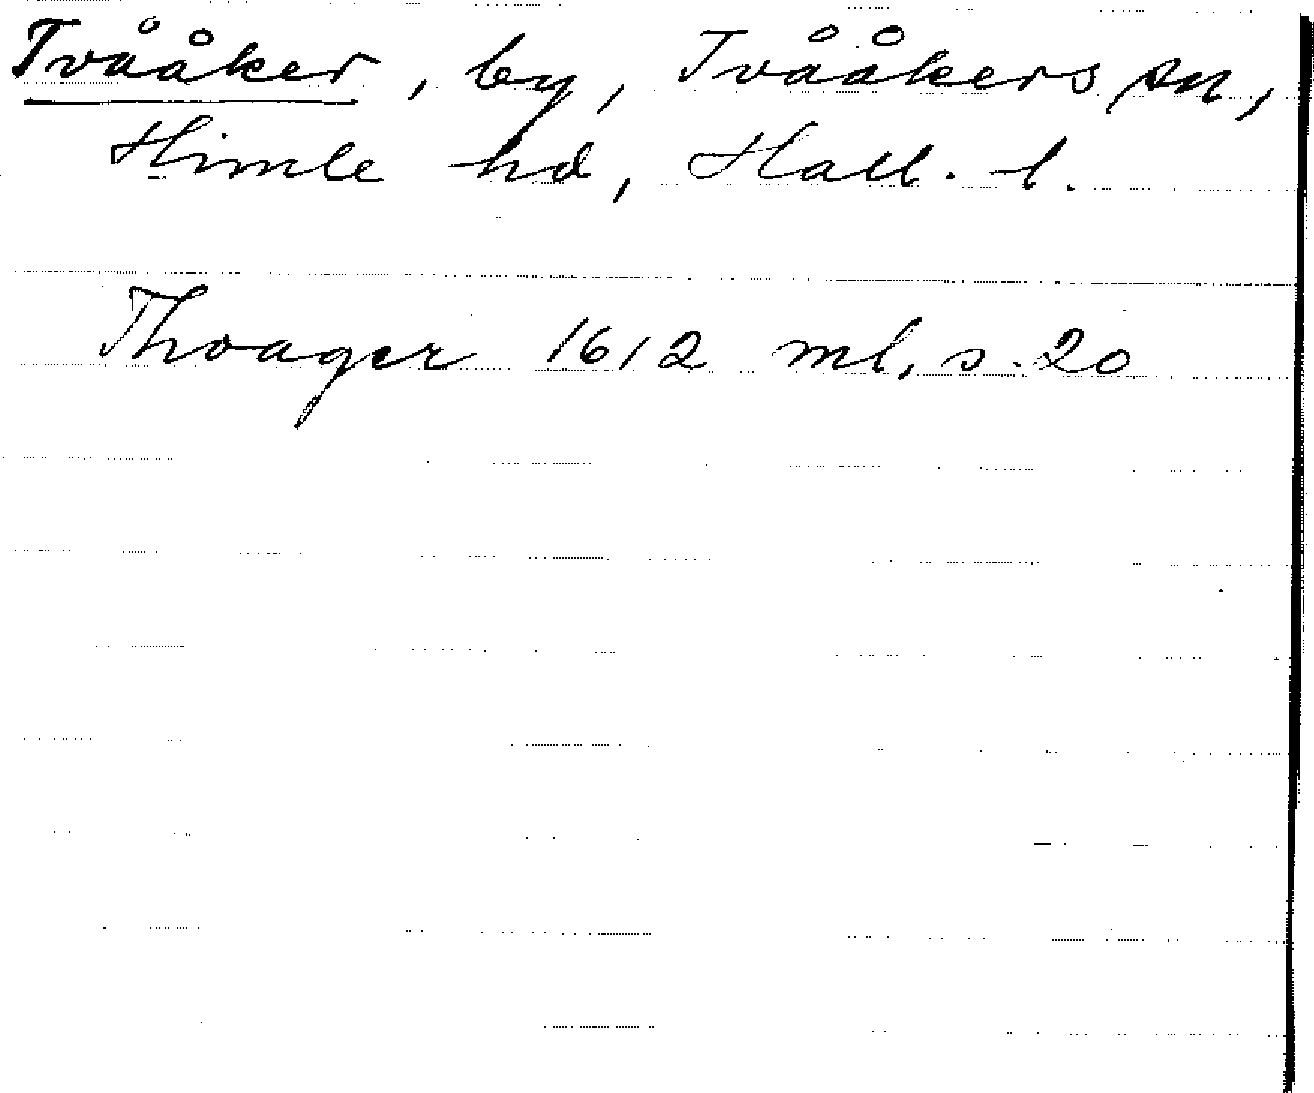 Tvååker, by, Tvååkers sn,
Himle hd, Hall. l.
Thvager 1612 ml, s. 20